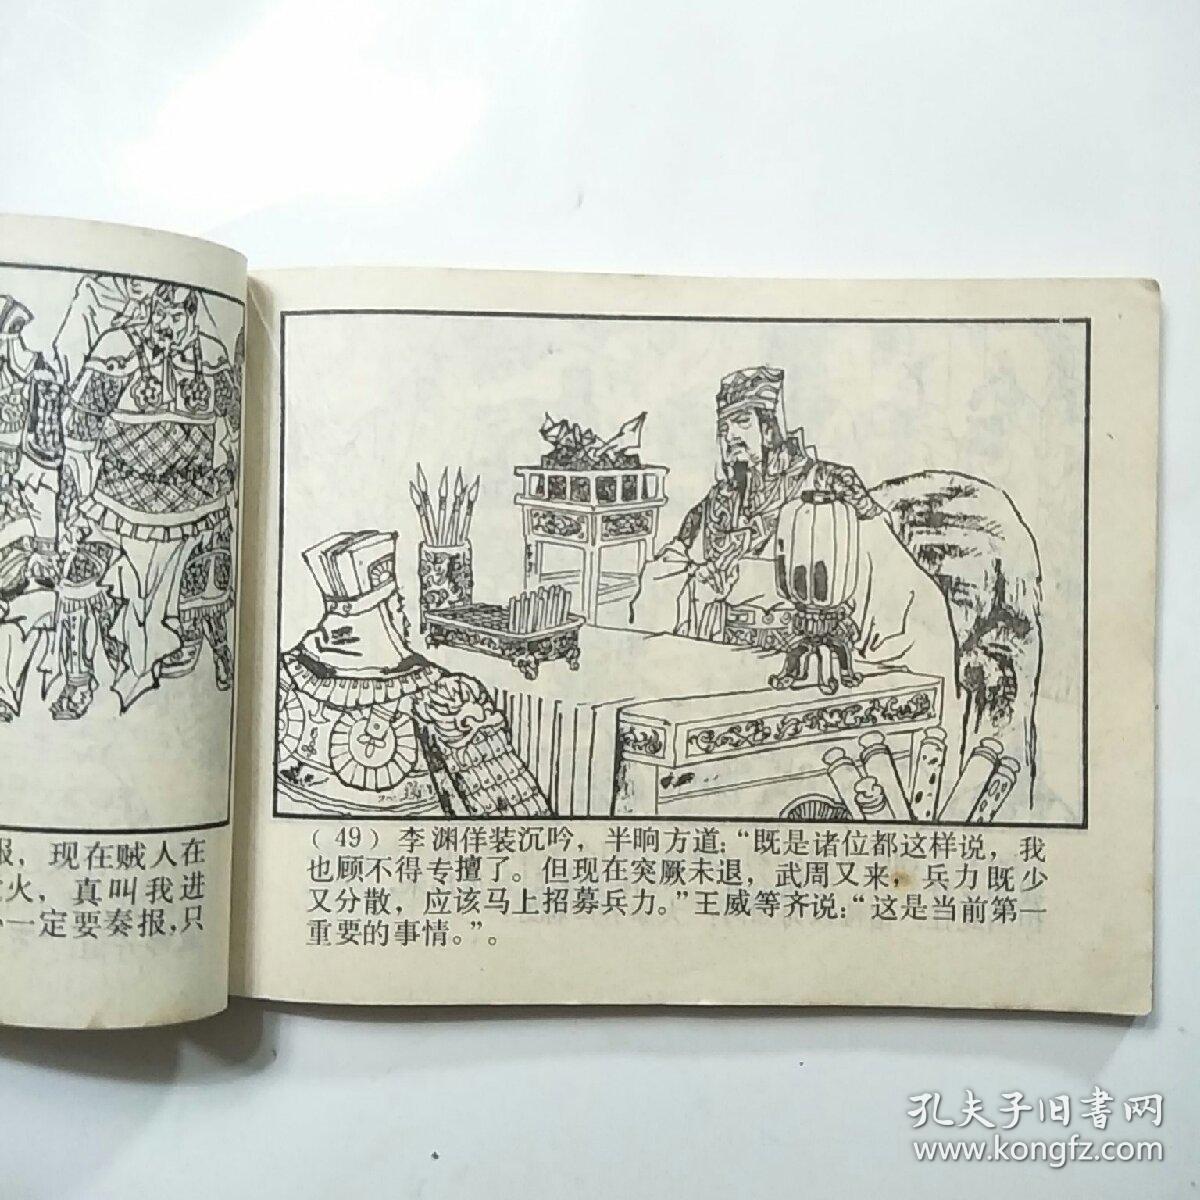 报，现在贼人在
火，真叫我进
一定要奏报，只
（49）李渊佯装沉吟，半晌方道：“既是诸位都这样说，我
也顾不得专擅了。但现在突厥未退，武周又来，兵力既少
又分散，应该马上招募兵力。”王威等齐说：“这是当前第一
重要的事情。”。
孔夫子旧书网
www.kongfz.com